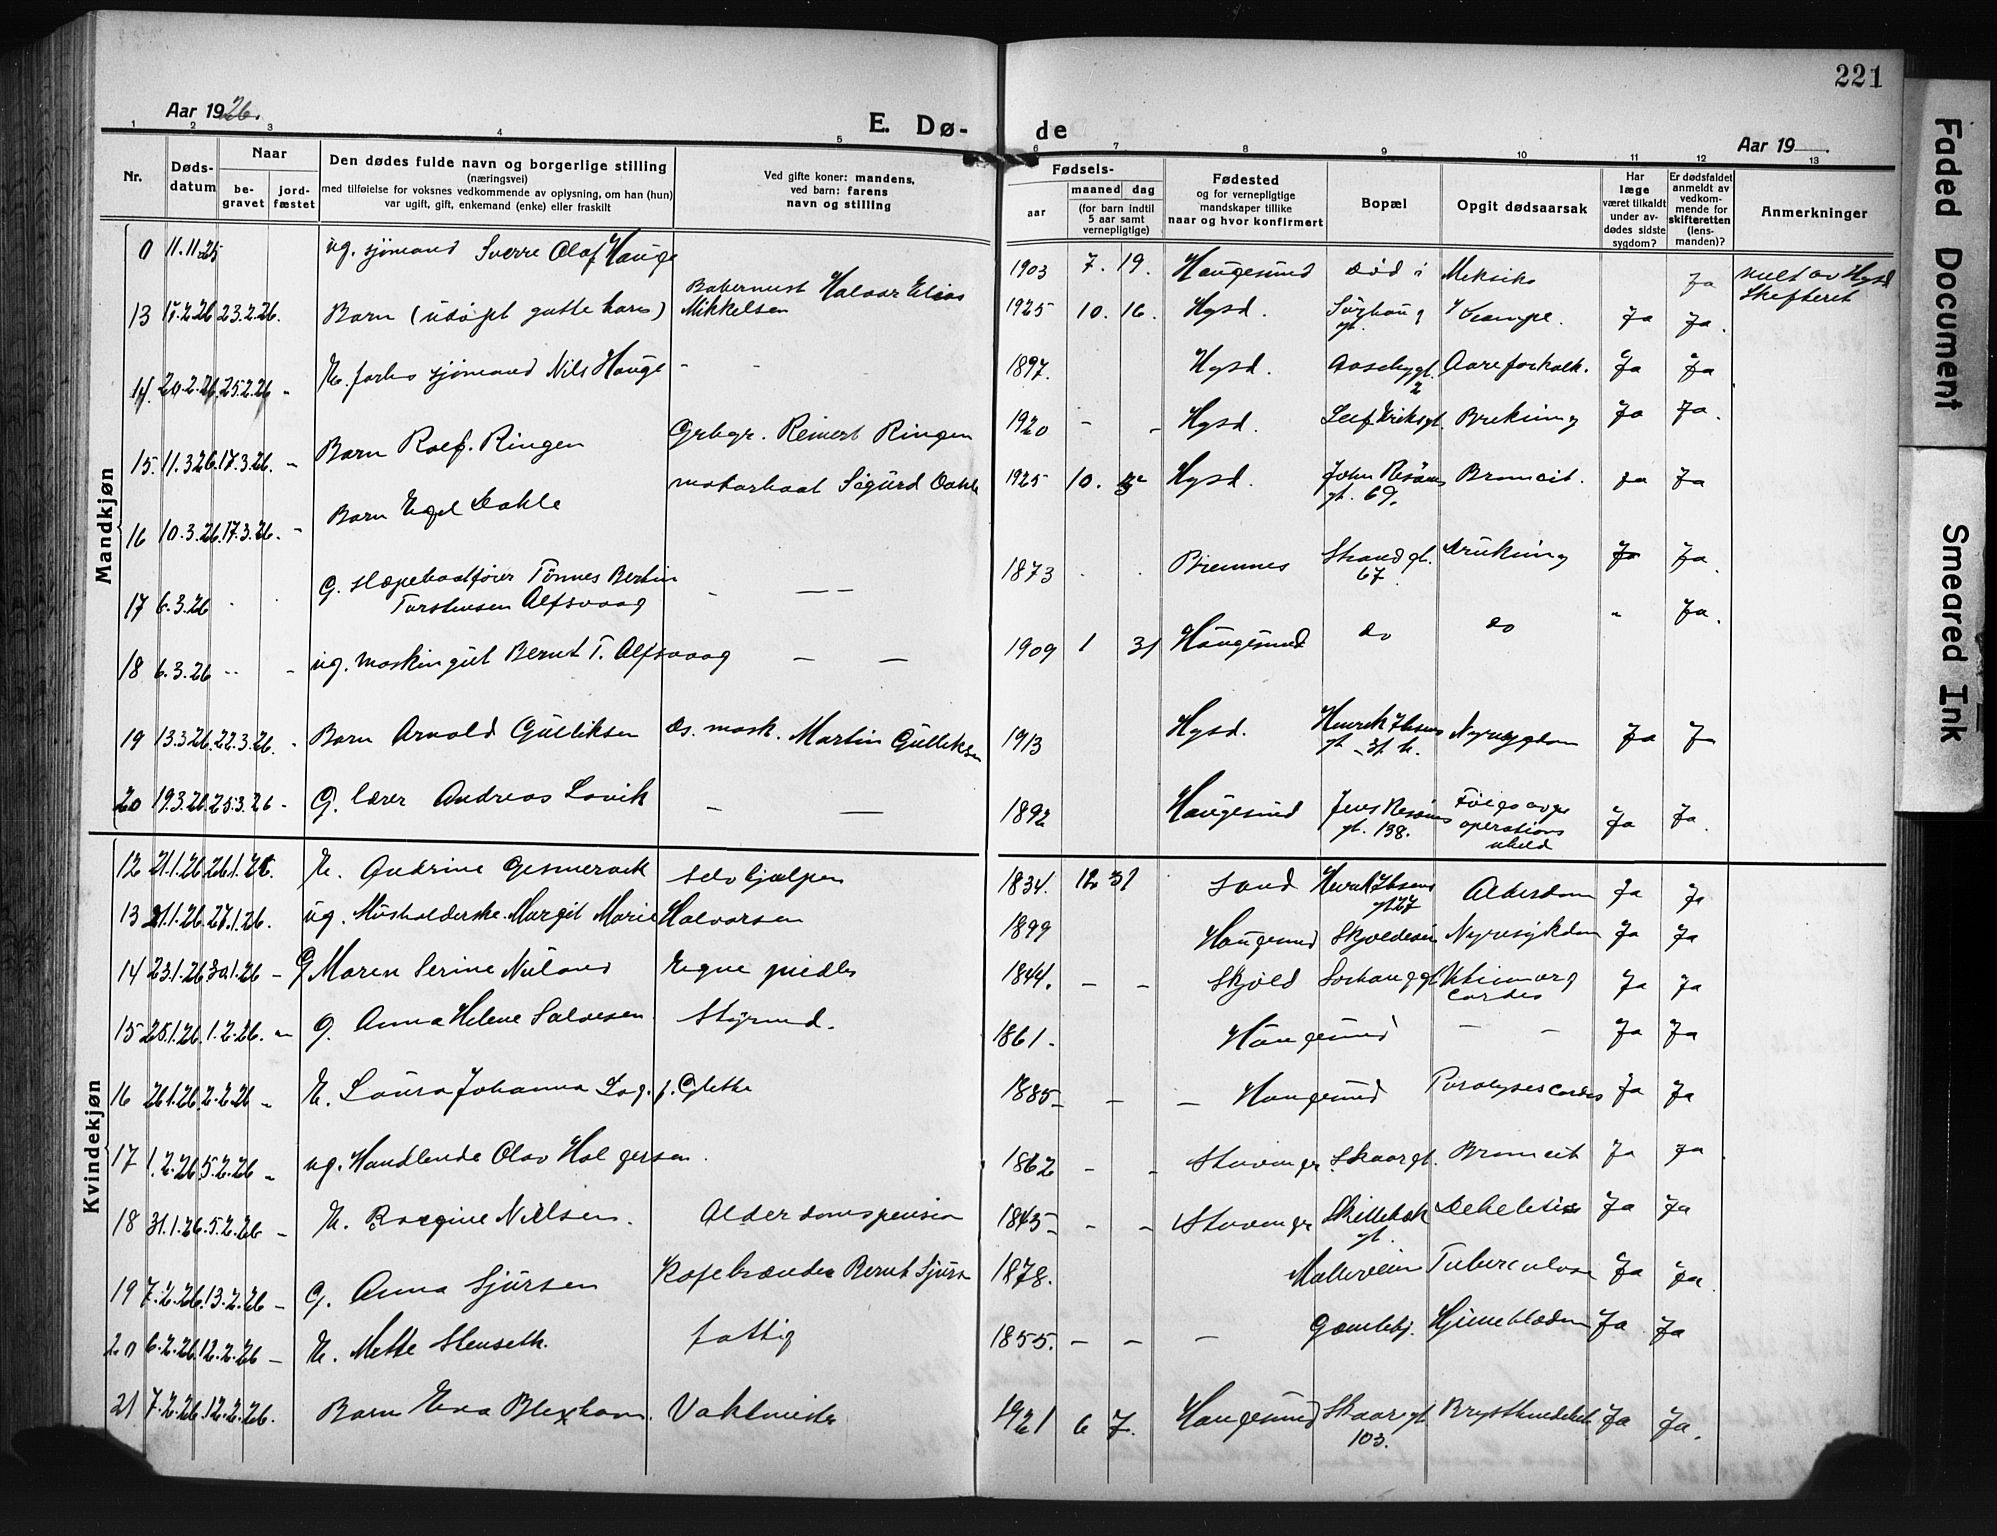 221
Aar 1926.
E. Dø- de
Aar 19
1 2 3 4 5 6 7 8 9 10 11 12 13
Nr.
Døds-
datum
Naar
be-
gravet
jord-
fæstet
Den dødes fulde navn og borgerlige stilling
(næringsvei)
med tilføielse for voksnes vedkommende av oplysning, om han (hun)
var ugift, gift, enkemand (enke) eller fraskilt
Ved gifte koner: mandens,
ved barn: farens
navn og stilling
Fødsels-
aar
maaned dag
(for barn indtil
5 aar samt
vernepligtige)
Fødested
og for vernepligtige
mandskaper tillike
naar og hvor konfirmert
Bopæl
Opgit dødsaarsak
Har
læge
været tilkaldt
under av-
dødes sidste
sygdom?
Er dødsfaldet
anmeldt av
vedkom-
mende for
skifteretten
(lens-
manden)?
Anmerkninger
Mandkjøn
0 11.11.25 ug. sjømand Sverre Olaf Hauge 1903 7. 19. Haugesund død i Meksiko Ja melt av Hgsd Skifteret
13 17.2.26 23.2.26. Barn (udøpt gutte barn) Halvor Elias Mikkelsen 1925 10. 16. Hgsd. Sørhaug gt. Krampe. Ja Ja.
14. 20.2.26. 25.2.26 - E. forhv sjømand Nils Hauge - - 1897. Hgsd. Aasbygt. 2 Aareforkalk. Ja Ja
15. 11.3.26. 17.3.26. - Barn Rolf. Ringen Grbgr. Reinert Ringen 1920 - - Hgsd. Leif Eriksgt. Brekning Ja Ja.
16 10.3.26. 17.3.26. - Barn Egel Dahle Sigurd Dahle 1925 10. Hgsd. John Risøens gt. 69. Broncit. Ja Ja
17 6.3.26 . . G. slæpebaatfører Tønnes Bertin Torstensen Alfsvaag - — 1873 . . Bremnes Strandgt. 67. Drukning Ja Ja.
18 6.3.26 - - ug. maskingut Bernt T. Alfsvaag — — 1909 1 31 Haugesund do do " Ja.
19 13.3.26. 22.3.26. - Barn Arnold Gulliksen Ds. mask. Martin Gulliksen 1913 Hgsd. Henrik Ibsens gt. Nyresygdom Ja Ja
20 19.3.26. 25.3.26 - G. lærer Andreas Lovik — — 1892 Haugesund Jens Risøens gt. 138. Følge av operations uheld Ja Ja.
Kvindekjøn
12 21.1.26. 26.1.26. E. Andrine Gismervik selvhjælpen 1834. 12 31 Sand Henrik Ibsens gt 27 Alderdom Ja Ja
13 21.1.26. 27.1.26. ug. Husholderske. Margit Marie Halvorsen 1899 Haugesund Skjoldevei Nyresykdom Ja Ja
14 23.1.26. 30.1.26 - G Maren Serine Niland Egne midler 1844. - - Skjold Sørhauggt Ja Ja
15 25.1.26. 1.2.26. - G. Anna Helene Salvesen Styrmd. 1861. Haugesund — — Ja Ja
16 26.1.26. 2.2.26 - E. Laura Johanna f. Glette 1885- - - Haugesund Paralyses cordis Ja Ja
17 1.2.26 5.2.26 - ug. Handlende Olav Holgersen. 1862 - - Stavanger Skaargt. Broncit Ja Ja
18 31.1.26. 5.2.26 - E. Bergine Nielsen. Alderdomspension 1843- - - Stavanger Skillebæk gt. Ja Ja
19 7.2.26. 13.2.26 - G. Anna Sjursen Kafebrænder Bernt Sjurs 1878. Møllerveien Tuberculose Ja Ja.
20 6.2.26 12.2.26 - E. Mette Stenseth. fattig 1855. - - - Gamlehj. Hjerneblødn Ja Ja
21 7.2.26. 12.2.26. Barn Eva Blixhavn. Vaktmester 1921 6 7. Haugesund Skaargt 103. Ja Ja.
Faded Document
Smeared Ink